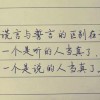 谎言与誓言的区别在
一个是听的人当真了、
一个是说的人当真了、